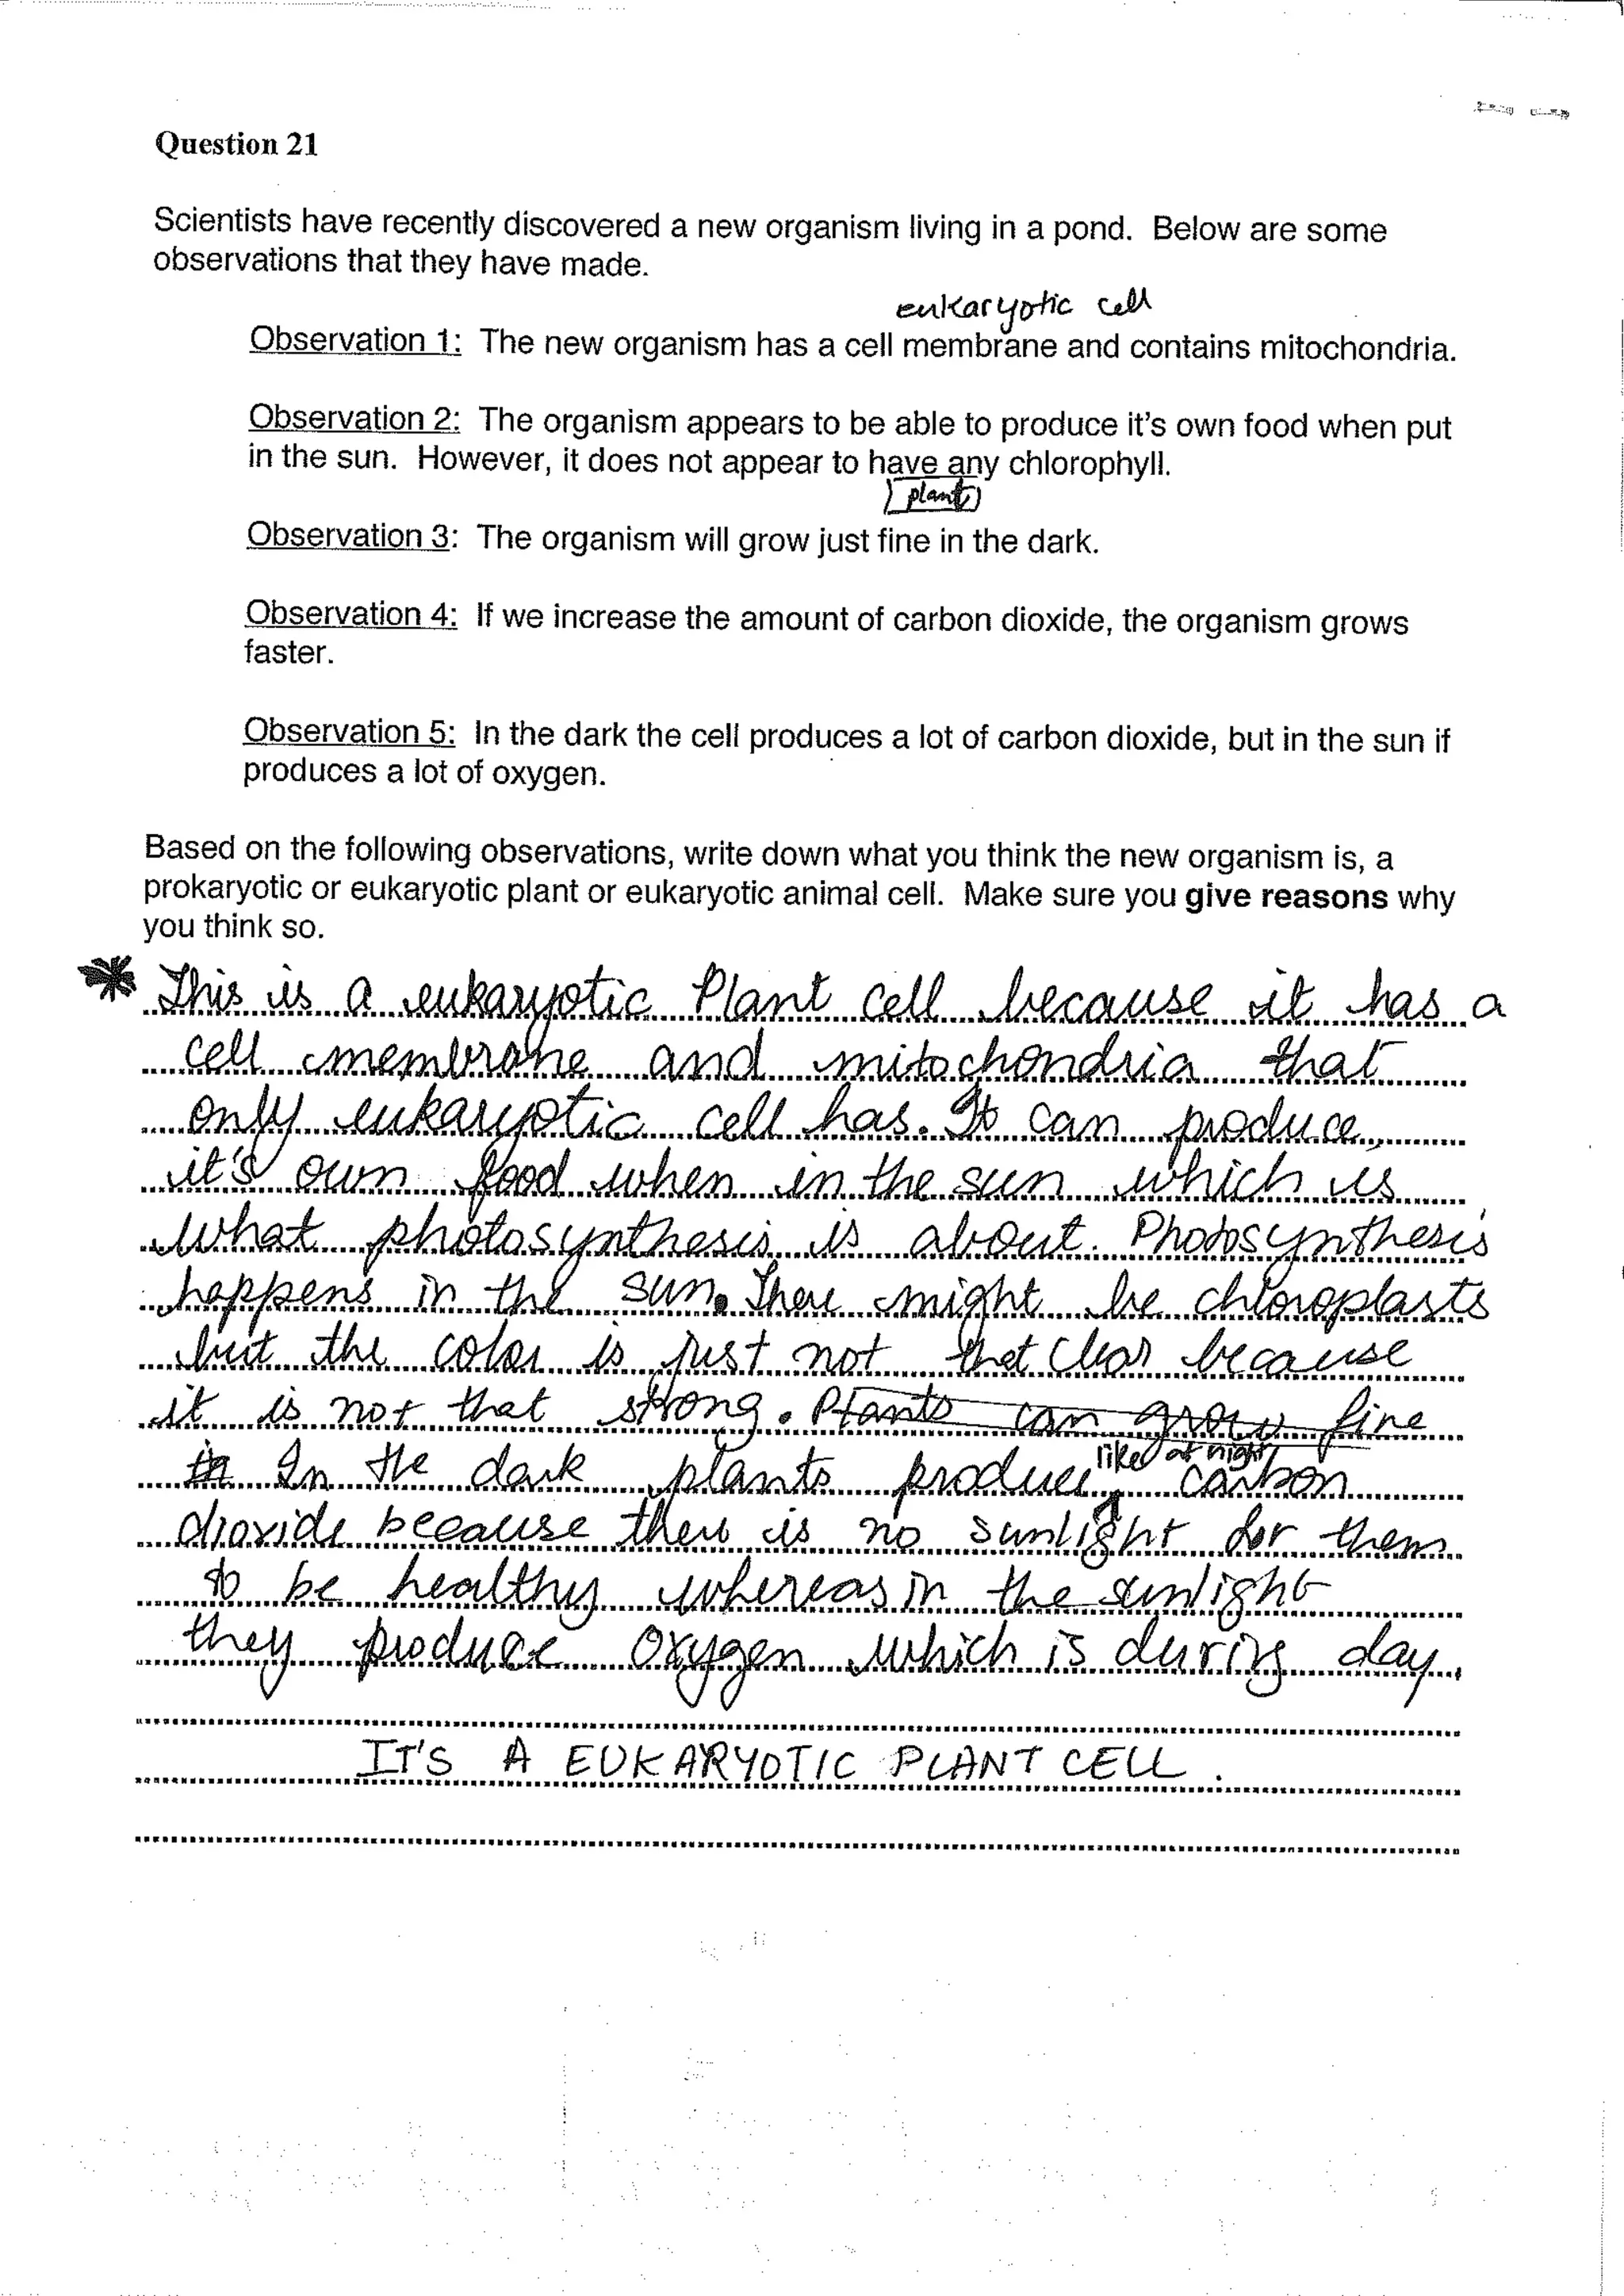 Question 21
Scientists have recently discovered a new organism living in a pond. Below are some
observations that they have made.
eukaryotic cell
Observation 1: The new organism has a cell membrane and contains mitochondria.
Observation 2: The organism appears to be able to produce it's own food when put
in the sun. However, it does not appear to have any chlorophyll.
plant
Observation 3: The organism will grow just fine in the dark.
Observation 4: If we increase the amount of carbon dioxide, the organism grows
faster.
Observation 5: In the dark the cell produces a lot of carbon dioxide, but in the sun if
produces a lot of oxygen.
Based on the following observations, write down what you think the new organism is, a
prokaryotic or eukaryotic plant or eukaryotic animal cell. Make sure you give reasons why
you think so.
This is a eukaryotic Plant cell because it has a
cell membrane and mitochondria that
only eukaryotic cell has. It can produce
it's own food when in the sun which is
what photosynthesis is about. Photosynthesis
happens in the sun. There might be chloroplasts
but the color is just not that clear because
it is not that strong. Plants can grow fine
in In the dark plants produce like at night carbon
dioxide because there is no sunlight for them
to be healthy whereas in the sunlight
they produce oxygen which is during day.
IT'S A EUKARYOTIC PLANT CELL.